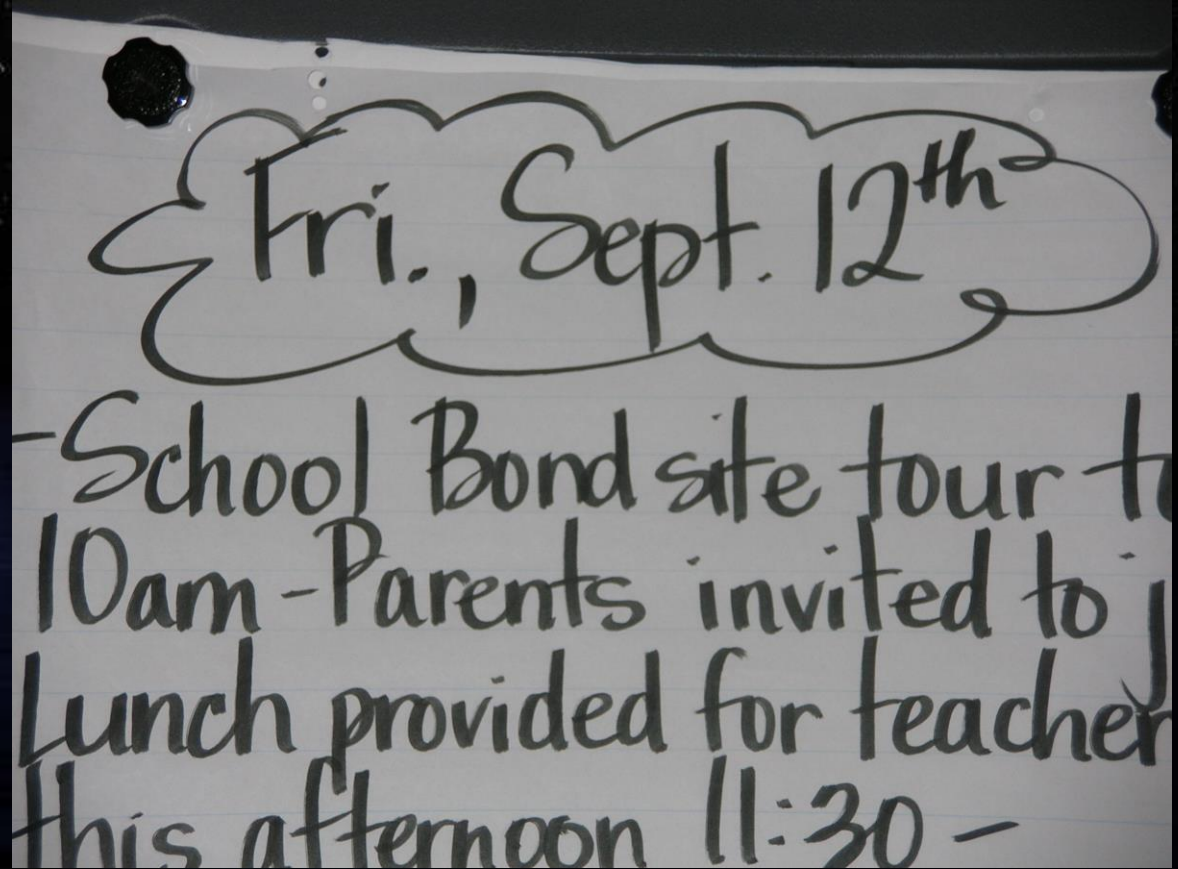 Fri., Sept. 12th
-School Bond site tour
10am - Parents invited to
Lunch provided for teacher
this afternoon 11:30 -